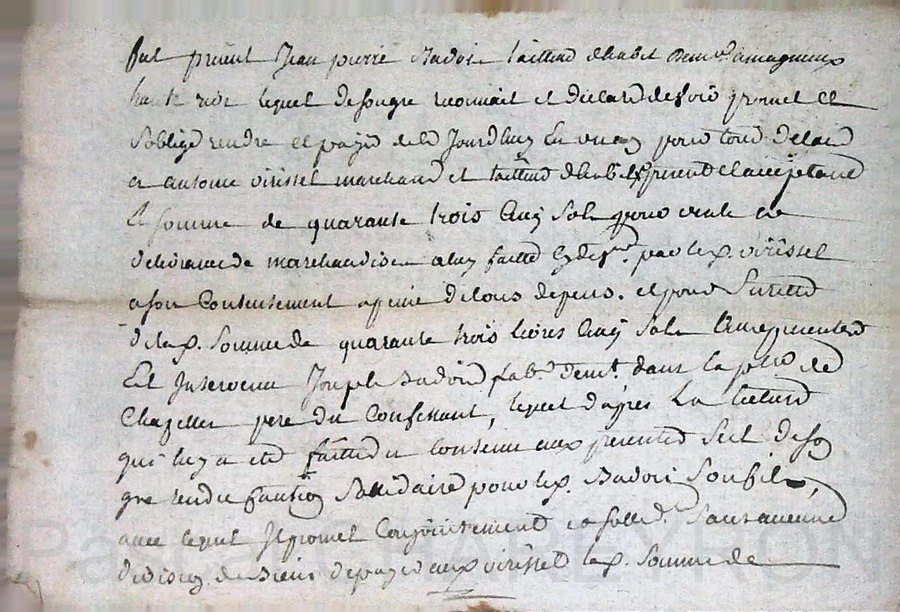 fut présent Jean pierre Badois tailleur d'habit demt. amagnieux
haute rive lequel de son gre reconnait et declare devoir promet et
s'oblige rendre et payer de ce Jourdhuy En un an pour tout delaid
a antoine virissel marchand et tailleur d'habits present et acceptand
la somme de quarante trois cinq sols pour vente et
delivrance de marchandises a luy faitte cy devt. par led. virissel
a son Contentement a peine de tous depens. et pour surette
de lad. Somme de quarante trois livres cinq sols
Est Intervenu Joseph Badois lab. demt. dans la psse de
Chazelles pere du Confessant, lequel d'apres La lecture
qui luy a eté faitte du contenu aux presentes sest de son
gre rendu Caution Solidaire pour led. Badois Son fils,
avec lequel Il promet Conjointement et solid. sans aucune
division de biens de payer aud. virissel lad. Somme de
Pascal CHAREYRON